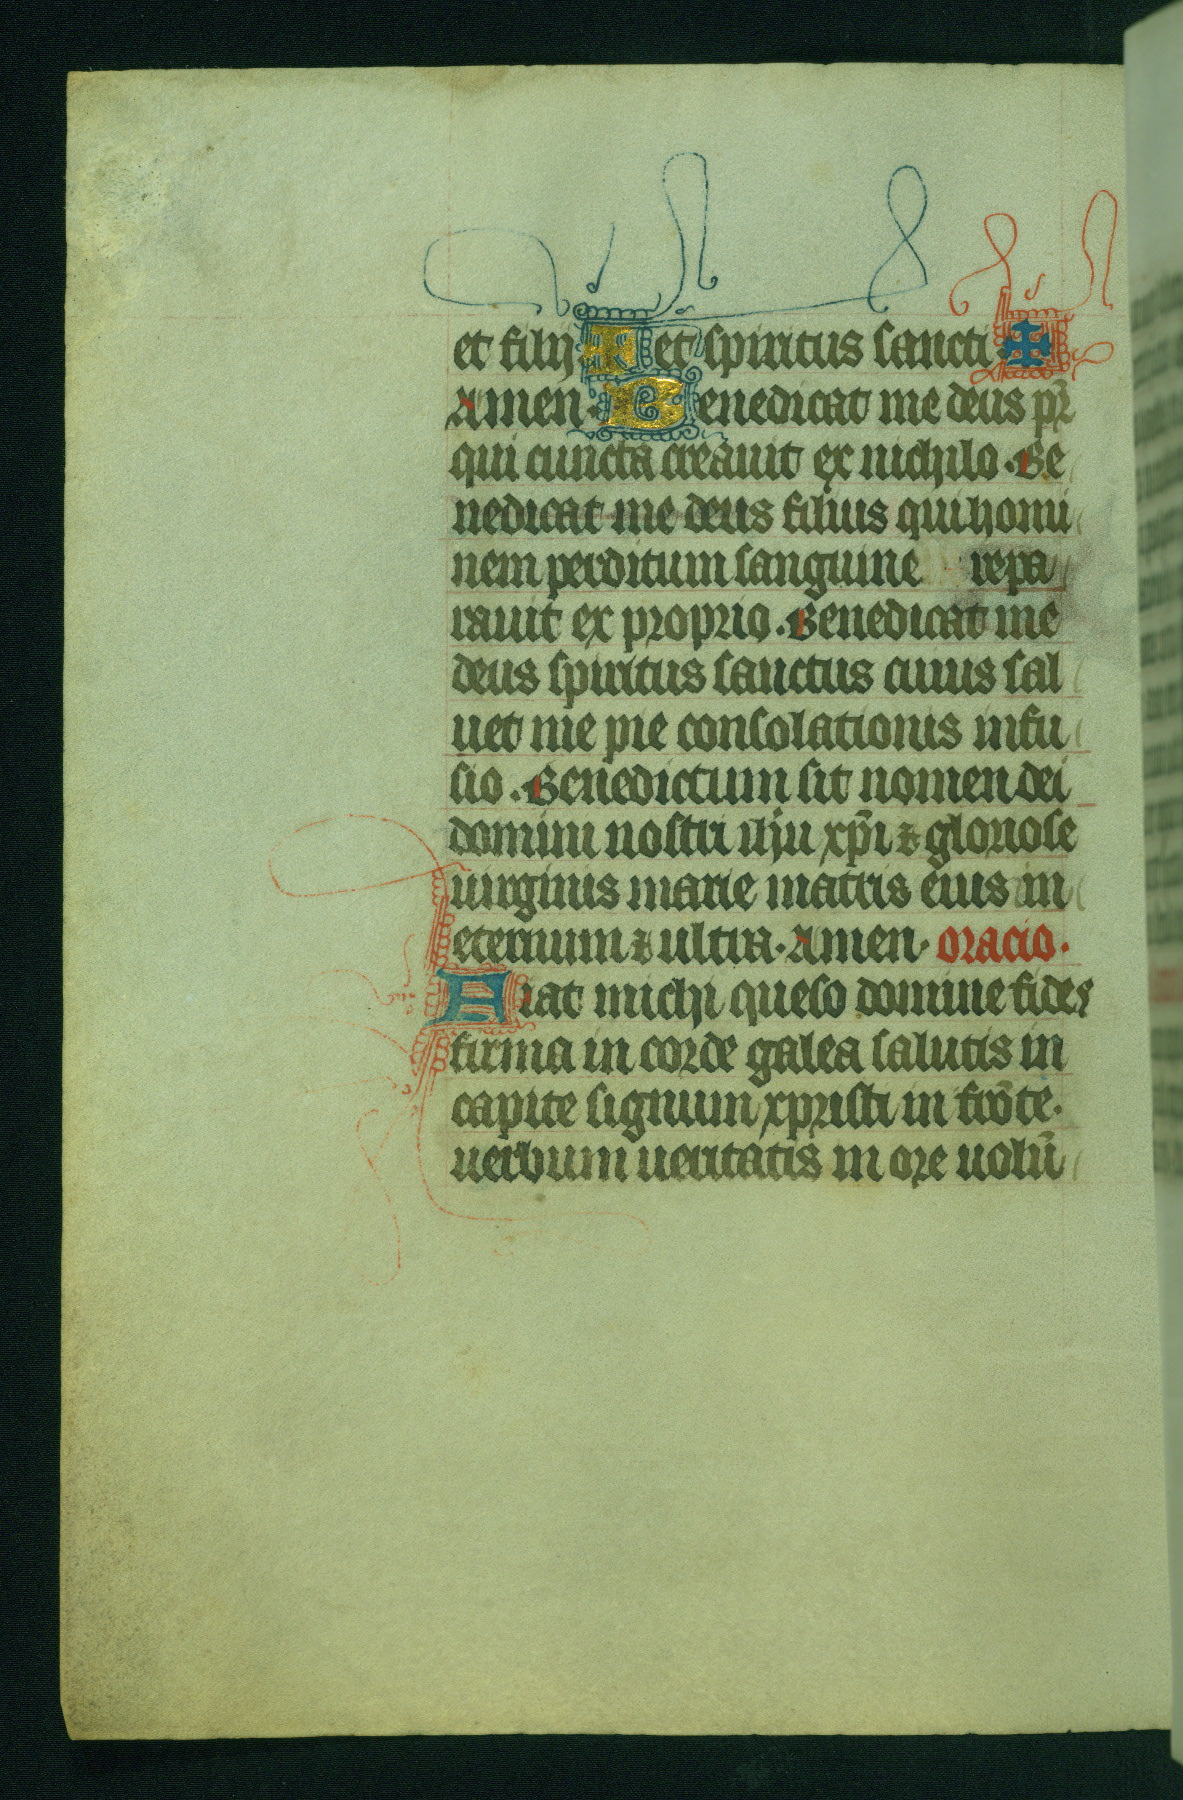 et filij ✠ et spiritus sancti ✠
Amen. Benedicat me deus pr̄
qui cuncta creauit ex nichilo. Be
nedicat me deus filius qui homi
nem perditum sanguine repa
rauit ex proprio. Benedicat me
deus spiritus sanctus cuius sal
uet me pie consolationis infu
sio. Benedictum sit nomen dei
domini nostri ihu xp̄i ⁊ gloriose
uirginis marie matris eius in
eternum ⁊ ultra. Amen. oracio.
Fiat michi queso domine fides
firma in corde galea salutis in
capite signum xpristi in frōte.
uerbum ueritatis in ore uolū